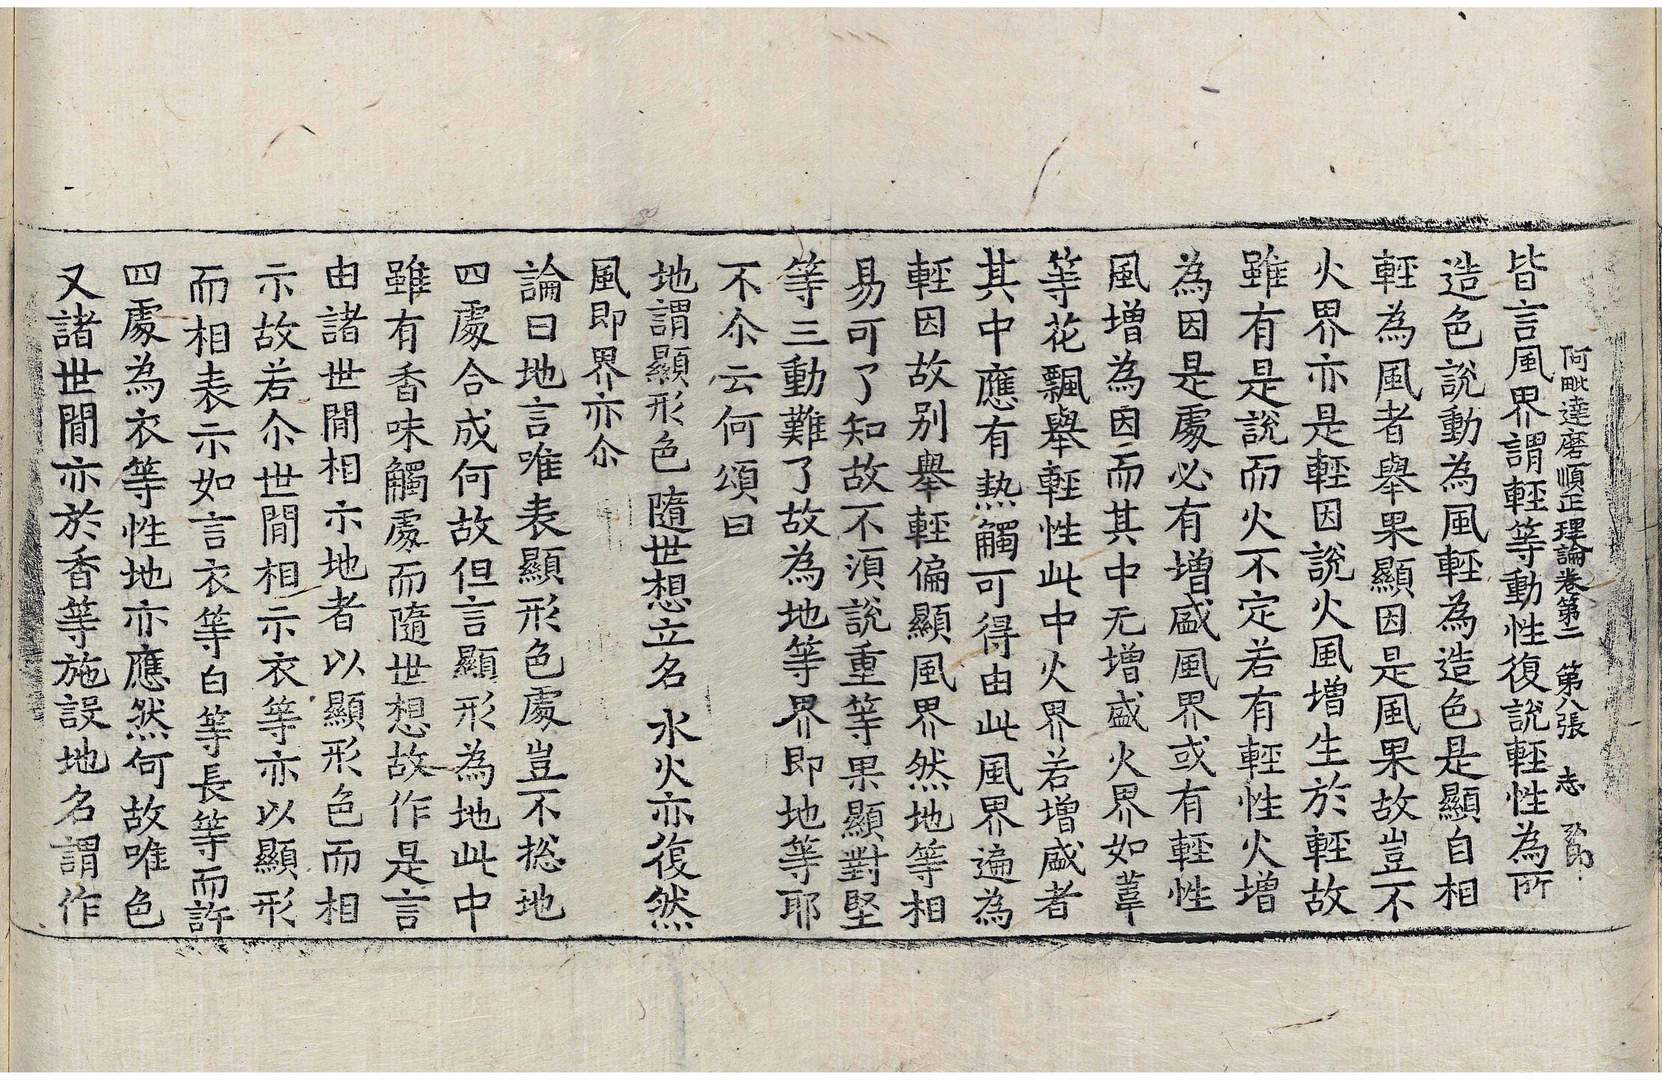 阿毗達磨順正理論卷第二　第八張　志
皆言風界謂輕等動性復說輕性為所
造色說動為風輕為造色是顯自相
輕為風者舉果顯因是風果故豈不
火界亦是輕因說火風增生於輕故
雖有是說而火不定若有輕性火增
為因是處必有增盛風界或有輕性
風增為因而其中无增盛火界如葦
等花飄舉輕性此中火界若增盛者
其中應有熱觸可得由此風界遍為
輕因故别舉輕偏顯風界然地等相
易可了知故不湏說重等果顯對堅
等三動難了故為地等界即地等耶
不尒云何頌曰
地謂顯形色　隨世想立名　水火亦復然
風即界亦尒
論曰地言唯表顯形色處豈不捴地
四處合成何故但言顯形為地此中
雖有香味觸處而隨世想故作是言
由諸世間相示地者以顯形色而相
示故若尒世間相示衣等亦以顯形
而相表示如言衣等白等長等而許
四處為衣等性地亦應然何故唯色
又諸世間亦於香等施設地名謂作